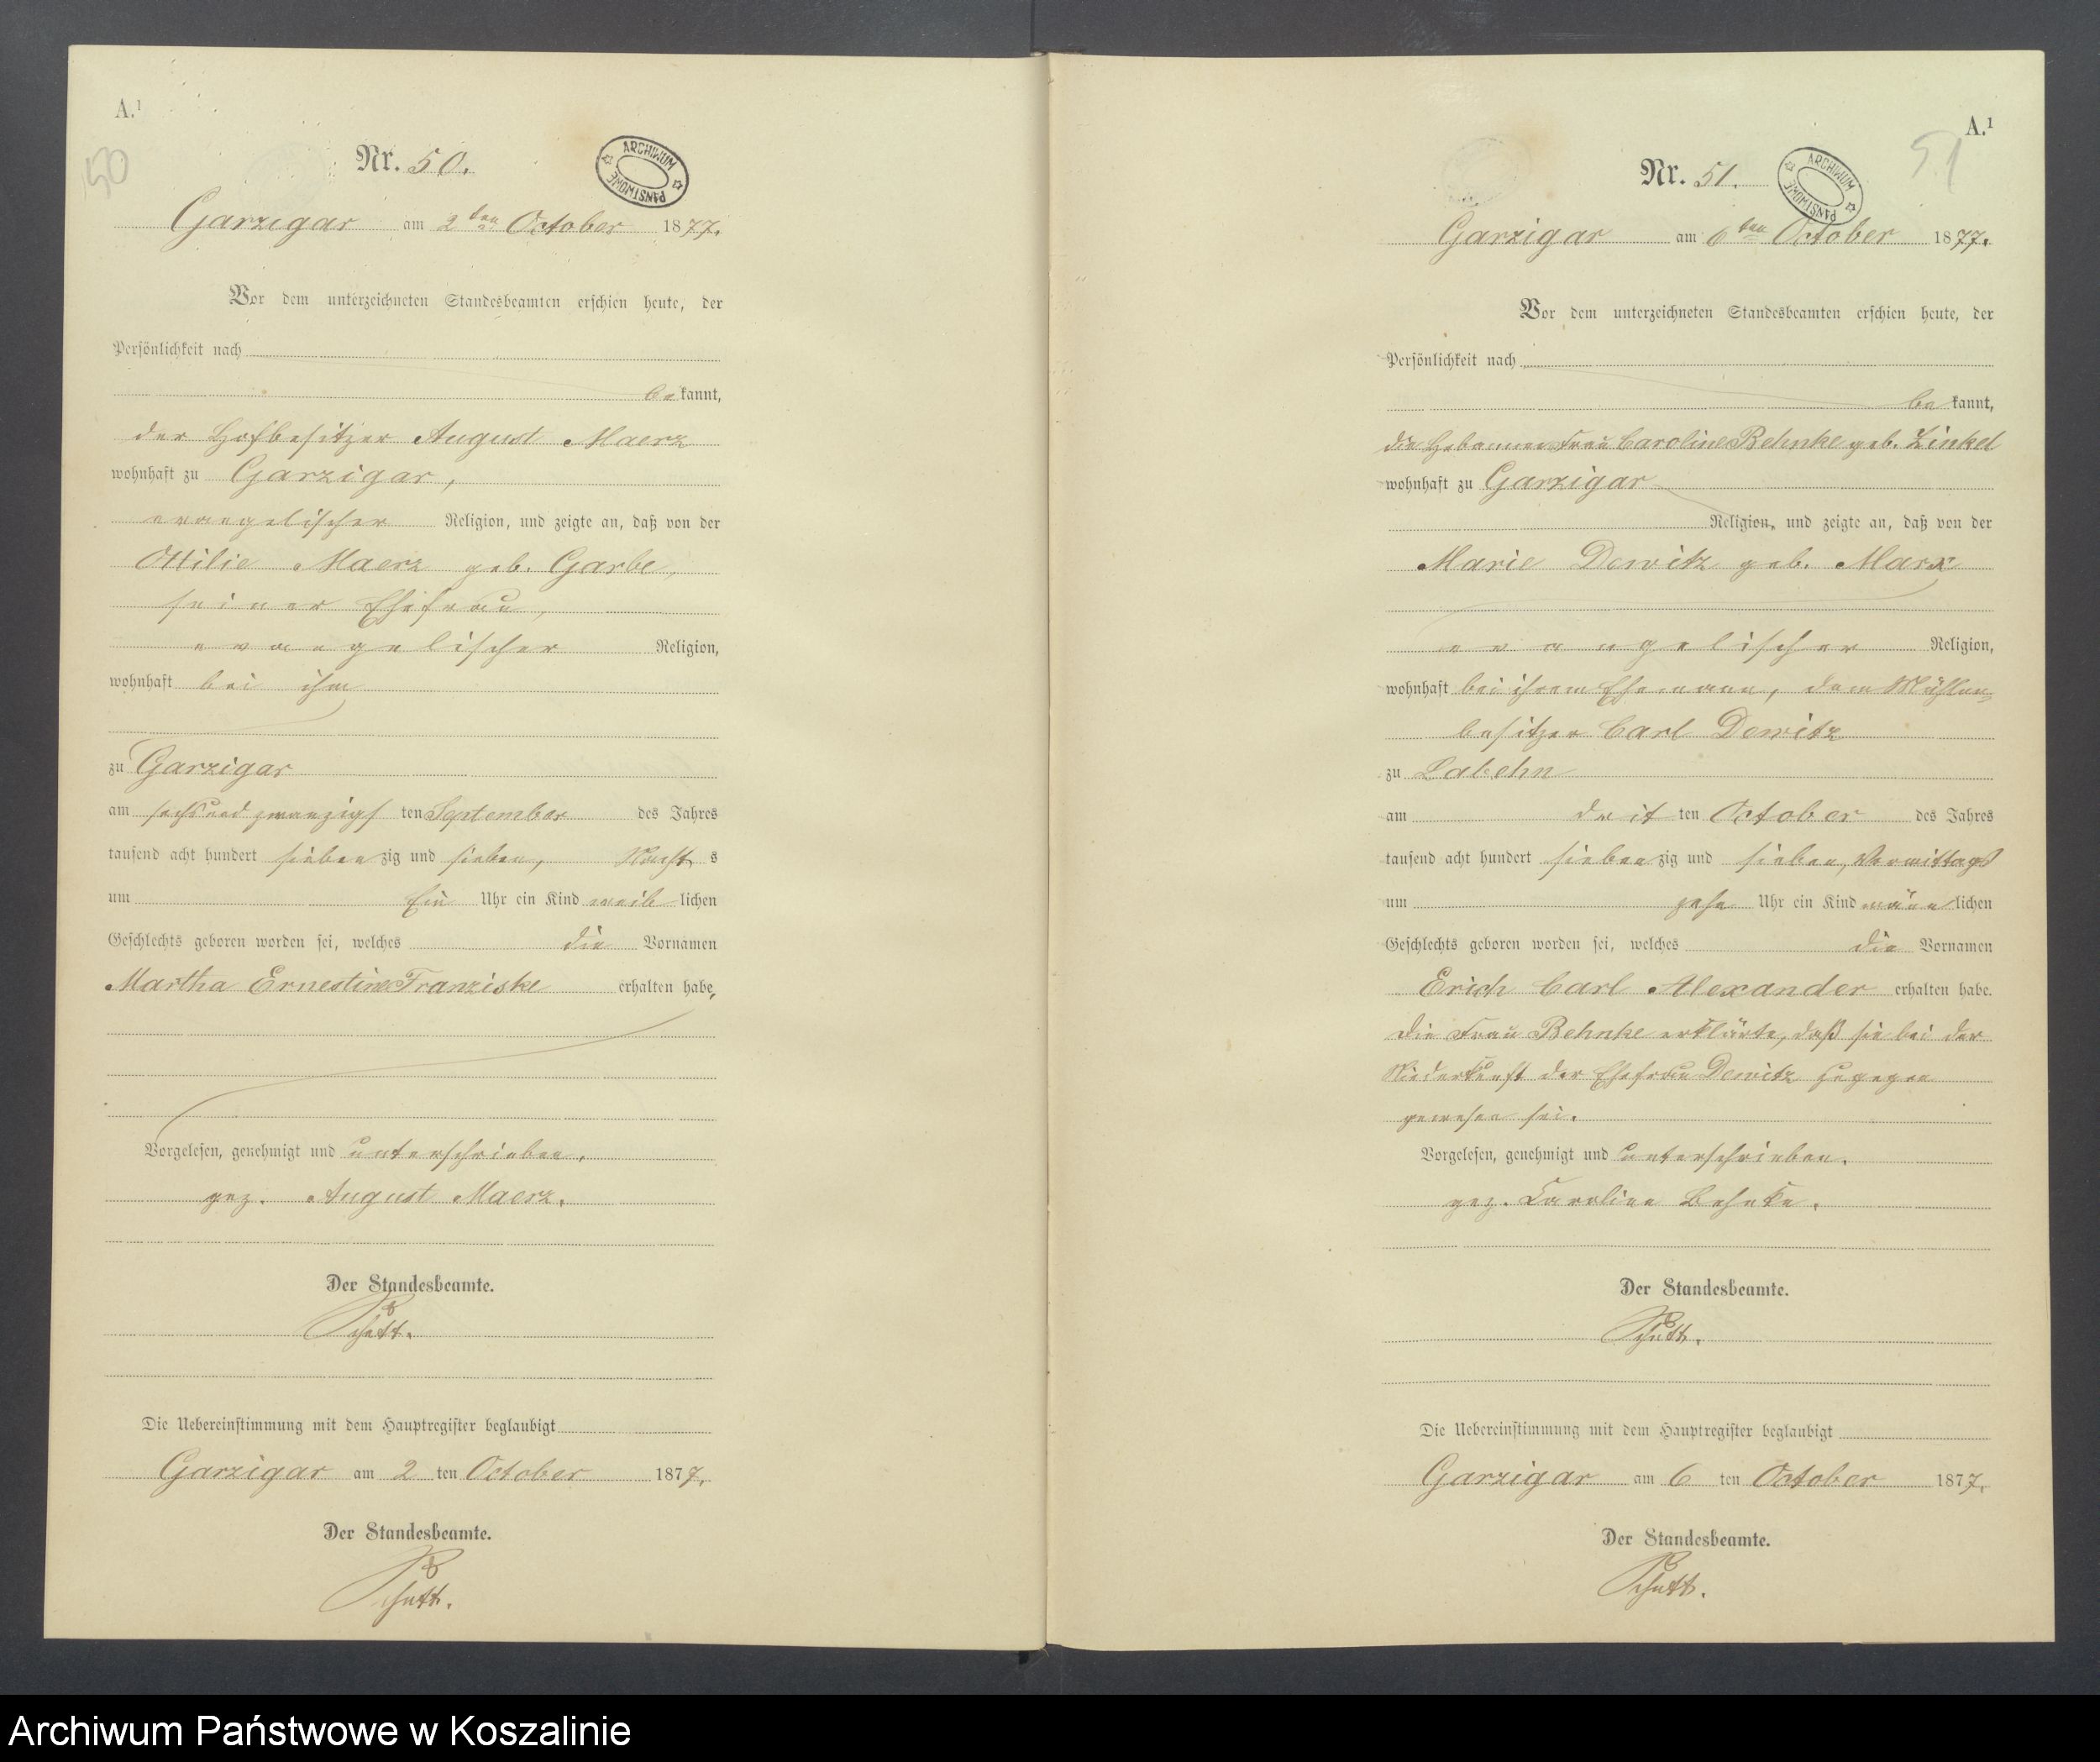 A.¹
50
Nr. 50.
ARCHIWUM PAŃSTWOWE
Garzigar am 2ten October 1877.
Vor dem unterzeichneten Standesbeamten erschien heute, der
Persönlichkeit nach
bekannt,
der Hofbesitzer August Maerz
wohnhaft zu Garzigar,
evangelischer Religion, und zeigte an, daß von der
Ottilie Maerz geb. Garbe,
seiner Ehefrau,
evangelischer Religion,
wohnhaft bei ihm
zu Garzigar
am sechsundzwanzigsten September des Jahres
tausend acht hundert siebenzig und sieben, Nachts
um Ein Uhr ein Kind weiblichen
Geschlechts geboren worden sei, welches die Vornamen
Martha Ernestine Franziske erhalten habe,
Vorgelesen, genehmigt und unterschrieben.
gez. August Maerz.
Der Standesbeamte.
Die Uebereinstimmung mit dem Hauptregister beglaubigt
Garzigar am 2 ten October 1877.
Der Standesbeamte.
A.¹
51
Nr. 51.
ARCHIWUM PAŃSTWOWE
Garzigar am 6ten October 1877.
Vor dem unterzeichneten Standesbeamten erschien heute, der
Persönlichkeit nach
bekannt,
die Hebamme Frau Caroline Behnke geb. Zinkel
wohnhaft zu Garzigar
Religion, und zeigte an, daß von der
Marie Dewitz geb. Marx
evangelischer Religion,
wohnhaft bei ihrem Ehemann, dem Mühlen-
besitzer Carl Dewitz
zu Labehn
am dritten October des Jahres
tausend acht hundert siebenzig und sieben, Vormittags
um zehn Uhr ein Kind männlichen
Geschlechts geboren worden sei, welches die Vornamen
Erich Carl Alexander erhalten habe.
Die Frau Behnke erklärte, daß sie bei der
Niederkunft der Ehefrau Dewitz zugegen
gewesen sei.
Vorgelesen, genehmigt und unterschrieben.
gez. Caroline Behnke.
Der Standesbeamte.
Die Uebereinstimmung mit dem Hauptregister beglaubigt
Garzigar am 6 ten October 1877.
Der Standesbeamte.
Archiwum Państwowe w Koszalinie